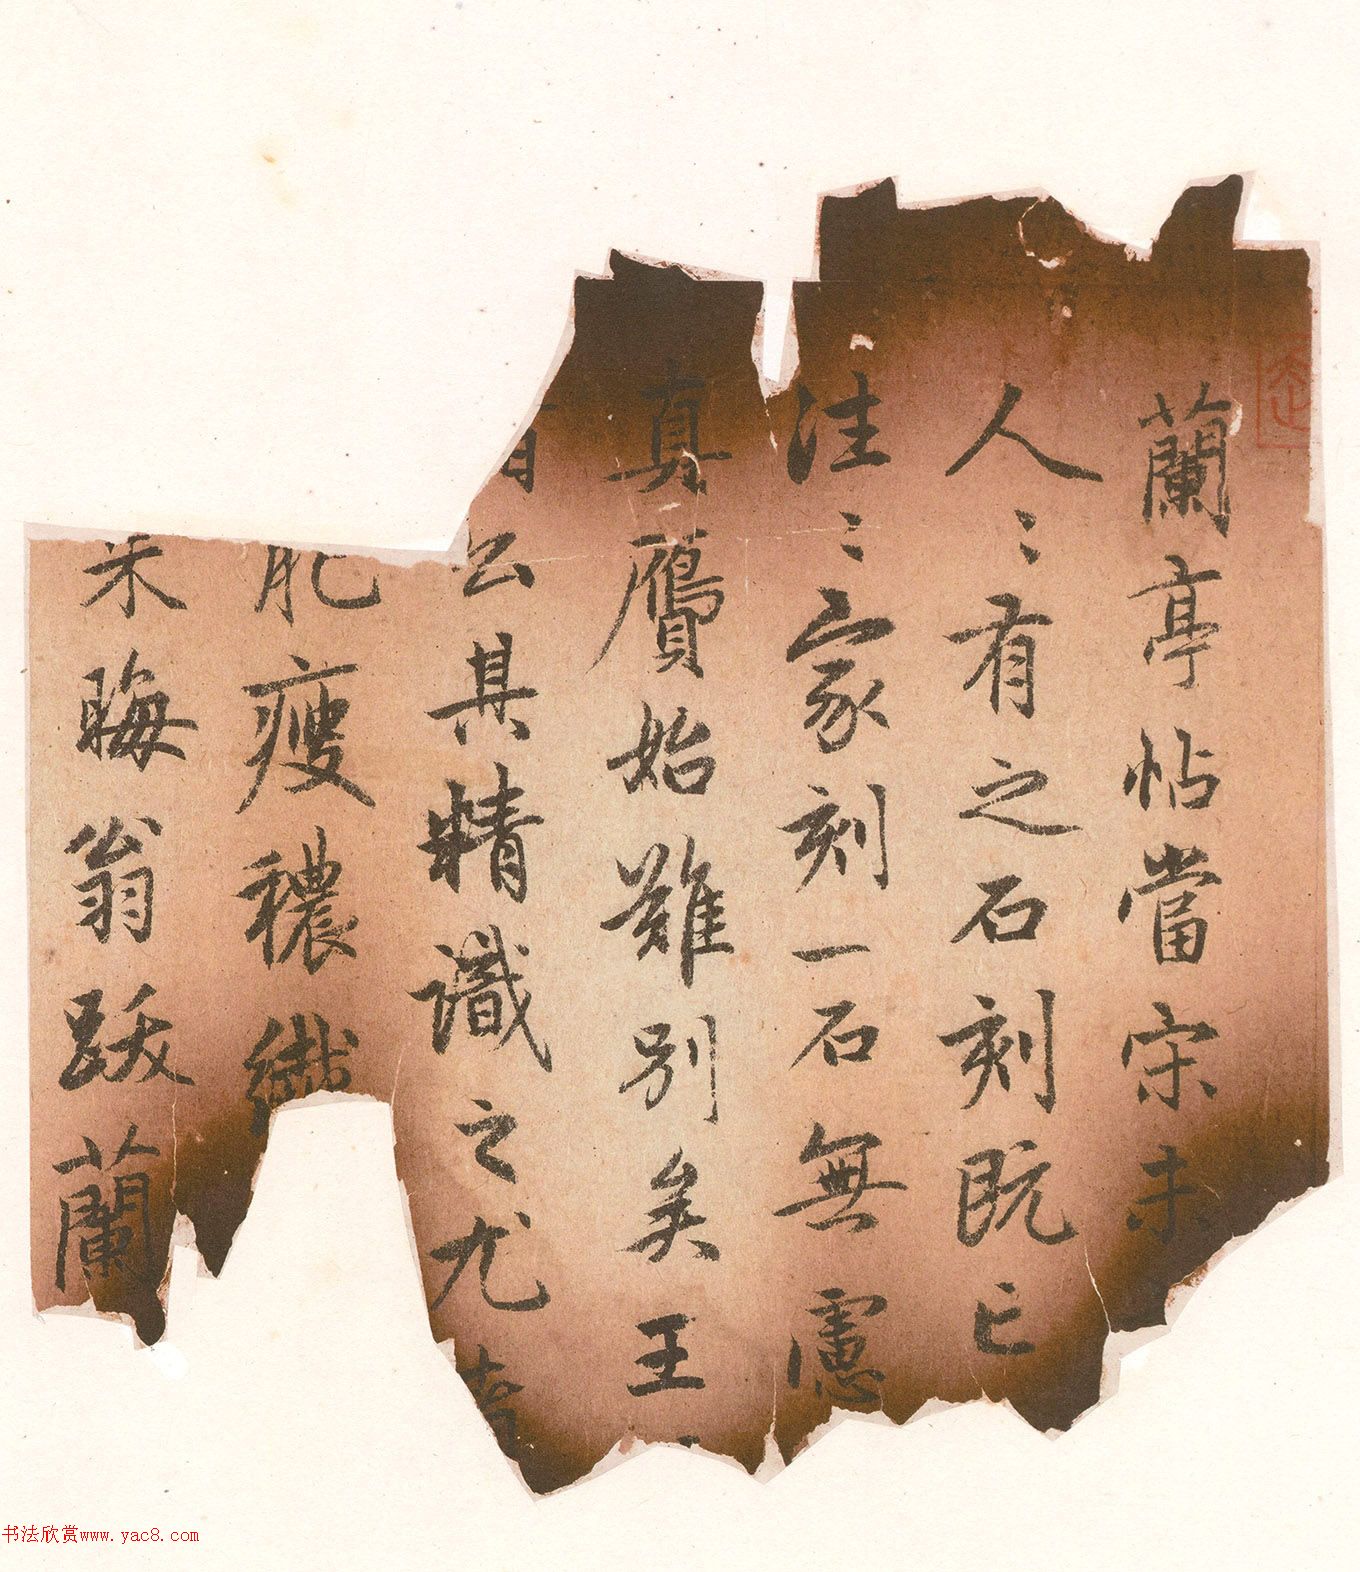 蘭亭帖當宋未
人〻有之石刻既亡
注〻家刻一石無慮
真贗始難別矣王
公其精識之尤
肥瘦穠纖
朱晦翁跋蘭
书法欣赏www.yac8.com